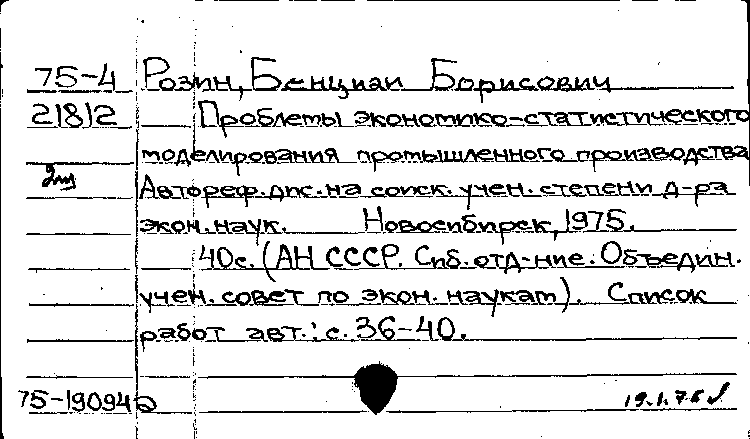 75-4 Розин, Бенциан Борисович
21812 Проблемы экономико-статистического
моделирования промышленного производства
2экз Автореф. дис. на соиск. учен. степени д-ра
экон. наук. Новосибирск, 1975.
40с. (АН СССР. Сиб. отд-ние. Объедин.
учен. совет по экон. наукам). Список
работ авт.: с. 36-40.
75-19094 19.1.76